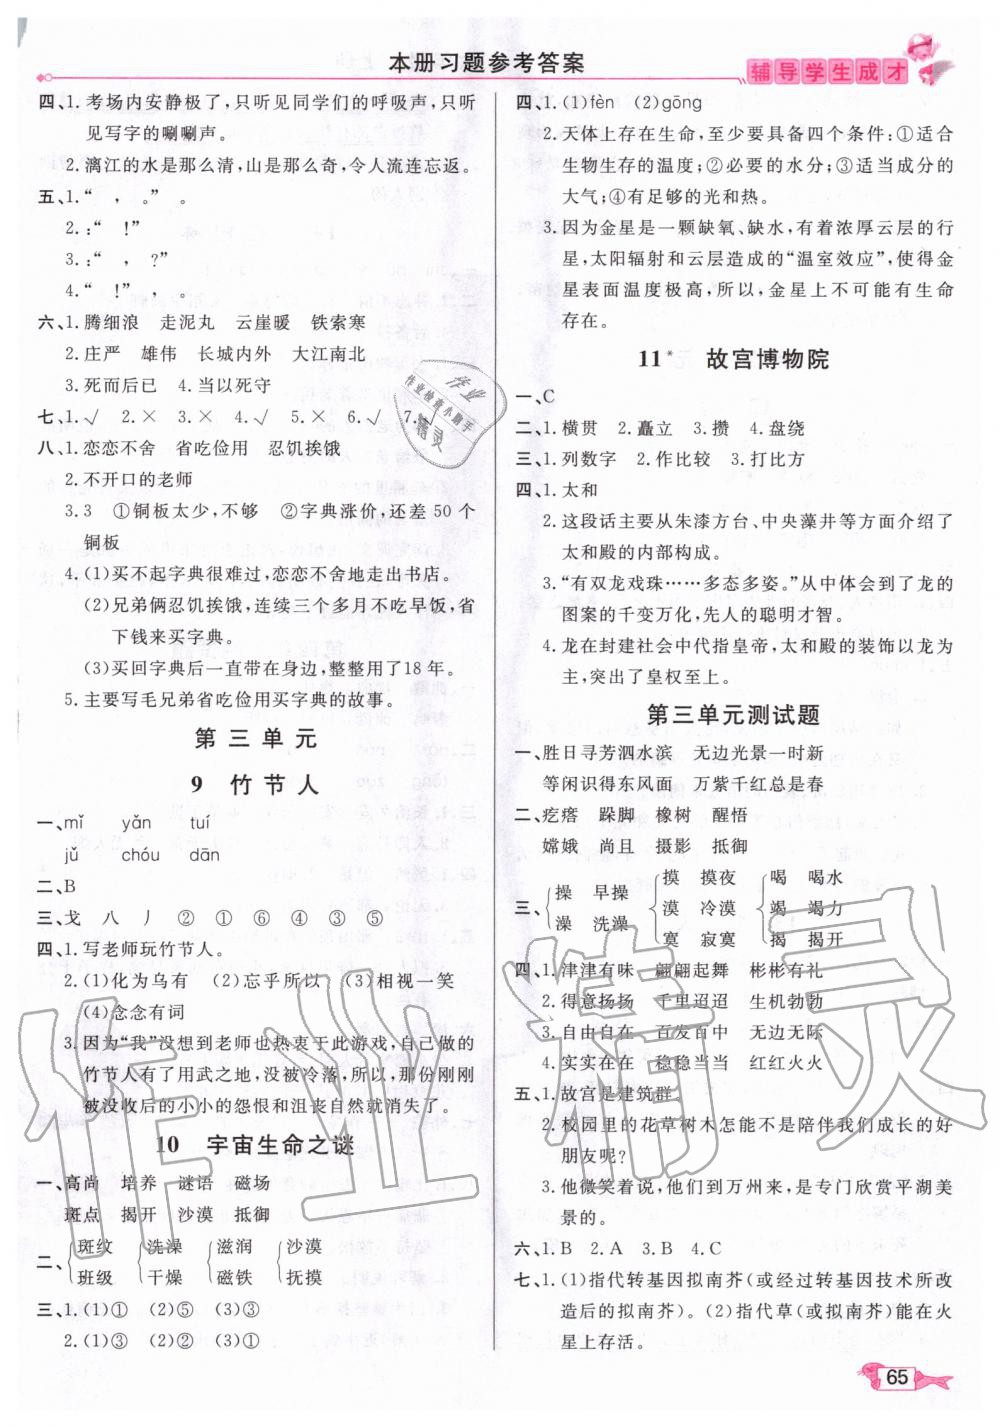 本册习题参考答案
辅导学生成才
四、1.考场内安静极了，只听见同学们的呼吸声，只听
见写字的唰唰声。
2.漓江的水是那么清，山是那么奇，令人流连忘返。
五、1.“　，　。”　。
2.：“　！”
3.：“　，　？”
4.“　！”，　。
六、1.腾细浪　走泥丸　云崖暖　铁索寒
2.庄严　雄伟　长城内外　大江南北
3.死而后已　4.当以死守
七、1.√　2.×　3.×　4.√　5.×　6.√　7.
八、1.恋恋不舍　省吃俭用　忍饥挨饿
2.不开口的老师
3.3　①铜板太少，不够　②字典涨价，还差50个
铜板
4.(1)买不起字典很难过，恋恋不舍地走出书店。
(2)兄弟俩忍饥挨饿，连续三个多月不吃早饭，省
下钱来买字典。
(3)买回字典后一直带在身边，整整用了18年。
5.主要写毛兄弟省吃俭用买字典的故事。
第三单元
9　竹节人
一、mǐ　yǎn　tuí
jǔ　chóu　dān
二、B
三、戈　八　丿　②　①　⑥　④　③　⑤
四、1.写老师玩竹节人。
2.(1)化为乌有　(2)忘乎所以　(3)相视一笑
(4)念念有词
3.因为“我”没想到老师也热衷于此游戏，自己做的
竹节人有了用武之地，没有被冷落，所以那份刚刚
被没收后的小小的怨恨和沮丧自然就消失了。
10　宇宙生命之谜
一、高尚　培养　谜语　磁场
斑点　揭开　沙漠　抵御
二、{斑纹　{洗澡　{滋润　{沙漠
班级　干燥　磁铁　抚摸
三、1.(1)①　(2)⑤　(3)③
2.(1)③　(2)②　(3)①
四、1.(1)fèn　(2)gōng
2.天体上存在生命，至少要具备四个条件：①适合
生物生存的温度；②必要的水分；③适当成分的
大气；④有足够的光和热。
3.因为金星是一颗缺氧、缺水，有着浓厚云层的行
星，太阳辐射和云层造成的“温室效应”，使得金
星表面温度极高，所以，金星上不可能有生命
存在。
11*　故宫博物院
一、C
二、1.横贯　2.矗立　3.攒　4.盘绕
三、1.列数字　2.作比较　3.打比方
四、1.太和
2.这段话主要从朱漆方台、中央藻井等方面介绍了
太和殿的内部构成。
3.“有双龙戏珠……多态多姿。”从中体会到了龙的
图案的千变万化，先人的聪明才智。
4.龙在封建社会中代指皇帝，太和殿的装饰以龙为
主，突出了皇权至上。
第三单元测试题
一、胜日寻芳泗水滨　无边光景一时新
等闲识得东风面　万紫千红总是春
二、疙瘩　跺脚　橡树　醒悟
嫦娥　尚且　摄影　抵御
三、{操　早操　{摸　摸夜　{喝　喝水
漠　冷漠　竭　竭力
澡　洗澡　寞　寂寞　揭　揭开
四、1.津津有味　翩翩起舞　彬彬有礼
2.得意扬扬　千里迢迢　生机勃勃
3.自由自在　百发百中　无边无际
4.实实在在　稳稳当当　红红火火
五、1.故宫是建筑群。
2.校园里的花草树木怎能不是陪伴我们成长的好
朋友呢？
3.他微笑着说，他们到万州来，是专门欣赏平湖美
景的。
六、1.B　2.A　3.B　4.C
七、1.(1)指代转基因拟南芥(或经过转基因技术所改
造后的拟南芥)。(2)指代草(或拟南芥)能在火
星上存活。
65
作业
作业检查小助手
精灵
作业精灵